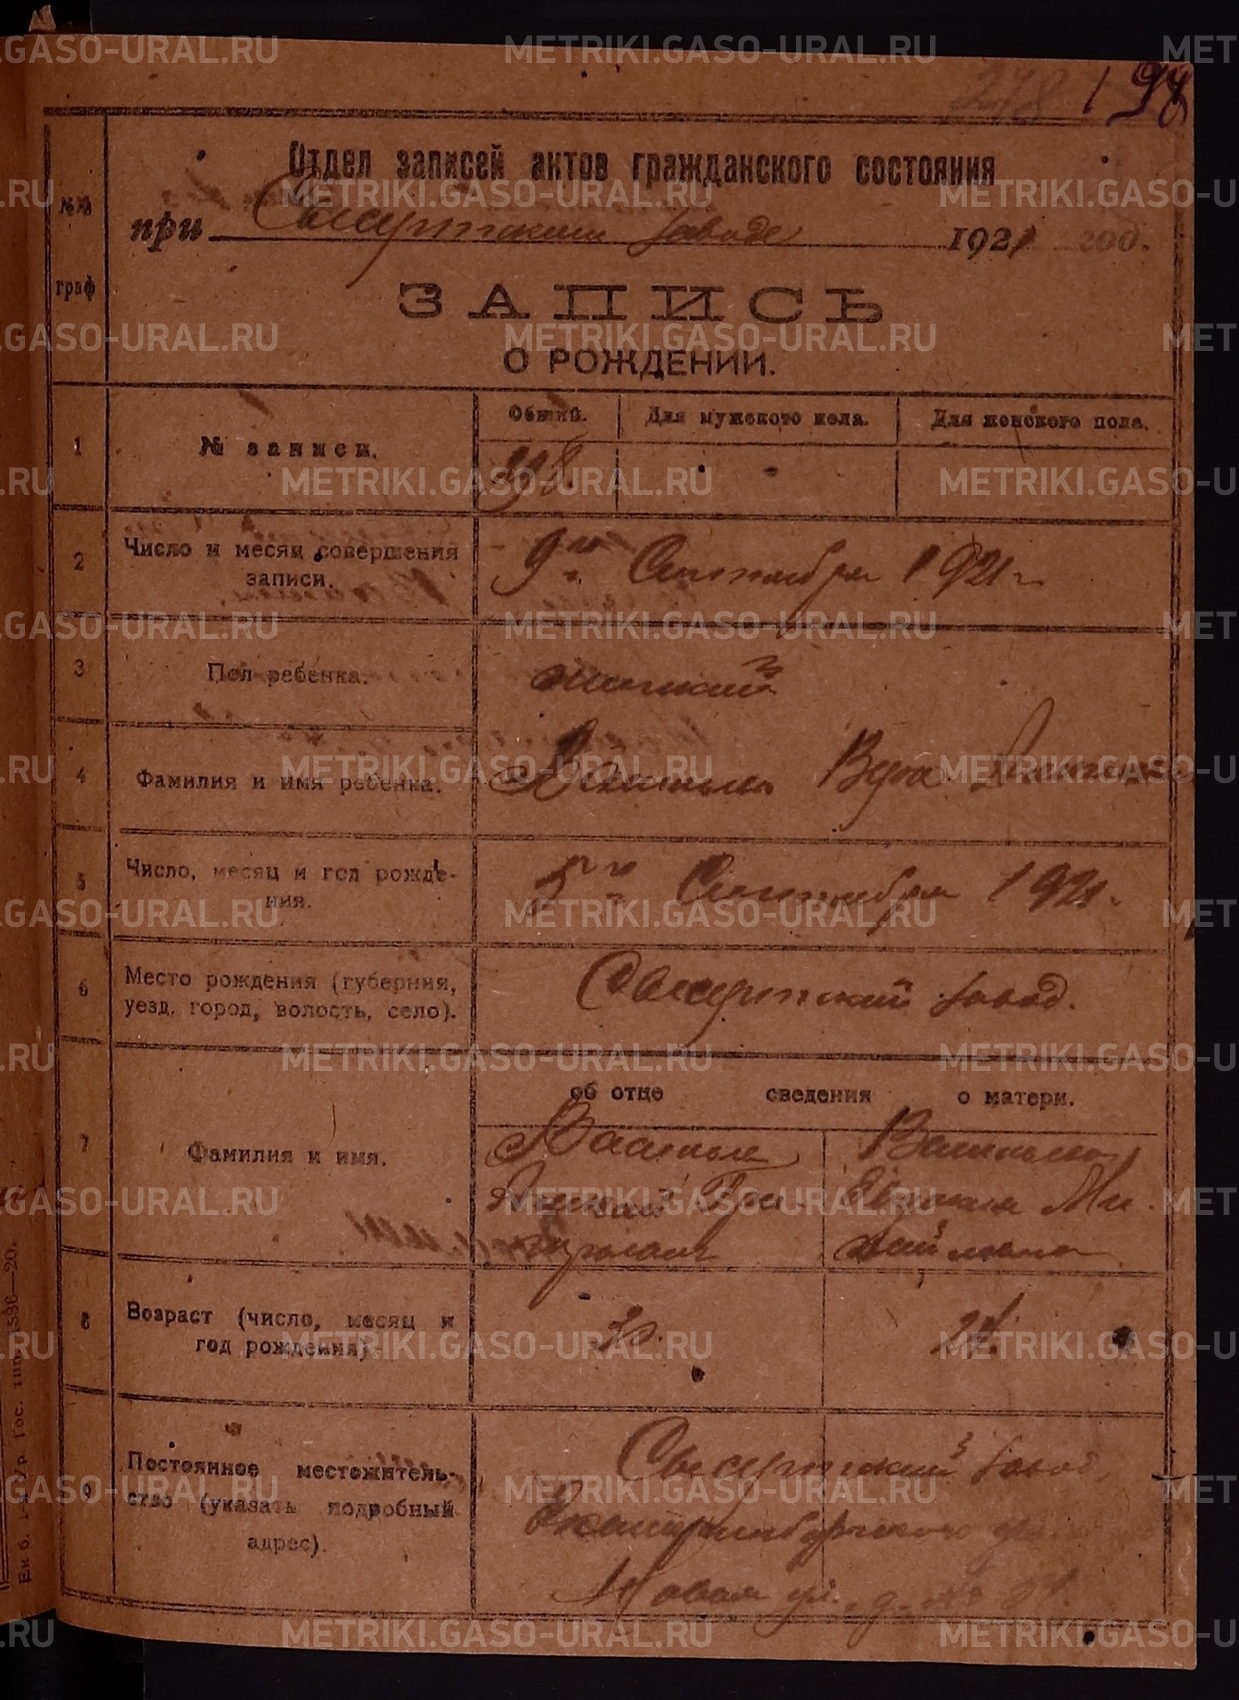 198
Отдел записей актов гражданского состояния
при Сысертском заводе 1921 год.
№№ граф
ЗАПИСЬ
О РОЖДЕНИИ.
1 № записи. Общий. Для мужского пола. Для женского пола.
398
2 Число и месяц совершения записи. 9го Сентября 1921 г
3 Пол ребенка. женский
4 Фамилия и имя ребенка. Вера
5 Число, месяц и год рождения. 5го Сентября 1921 г.
6 Место рождения (губерния, уезд, город, волость, село). Сысертский завод.
об отце сведения о матери.
7 Фамилия и имя.
Алексей Гри
горьевич
Евдокия Ми
хайловна
8 Возраст (число, месяц и год рождения)
9 Постоянное местожительство (указать подробный адрес). Сысертский завод
Екатеринбургского
Новая ул. д. №
METRIKI.GASO-URAL.RU